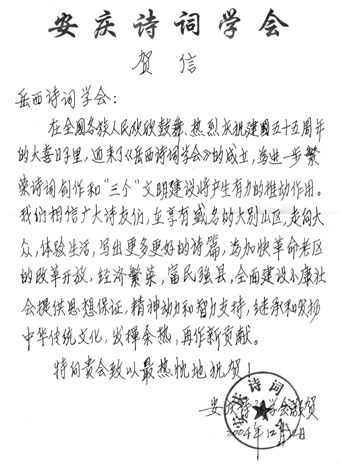 安庆诗词学会
贺信
岳西诗词学会：
在全国各族人民欣欣鼓舞、热烈庆祝建国五十五周年
的大喜日子里，迎来了《岳西诗词学会》的成立，为进一步繁
荣诗词创作和“三个”文明建设将产生有力的推动作用。
我们相信广大诗友们，在享有盛名的大别山区，走向大
众，体验生活，写出更多更好的诗篇，为加快革命老区
的改革开放，经济繁荣，富民强县，全面建设小康社
会提供思想保证，精神动力和智力支持，继承和发扬
中华传统文化，发挥余热，再作新贡献。
特向贵会致以最热忱地祝贺！
安庆诗词学会敬贺
2004年12月日